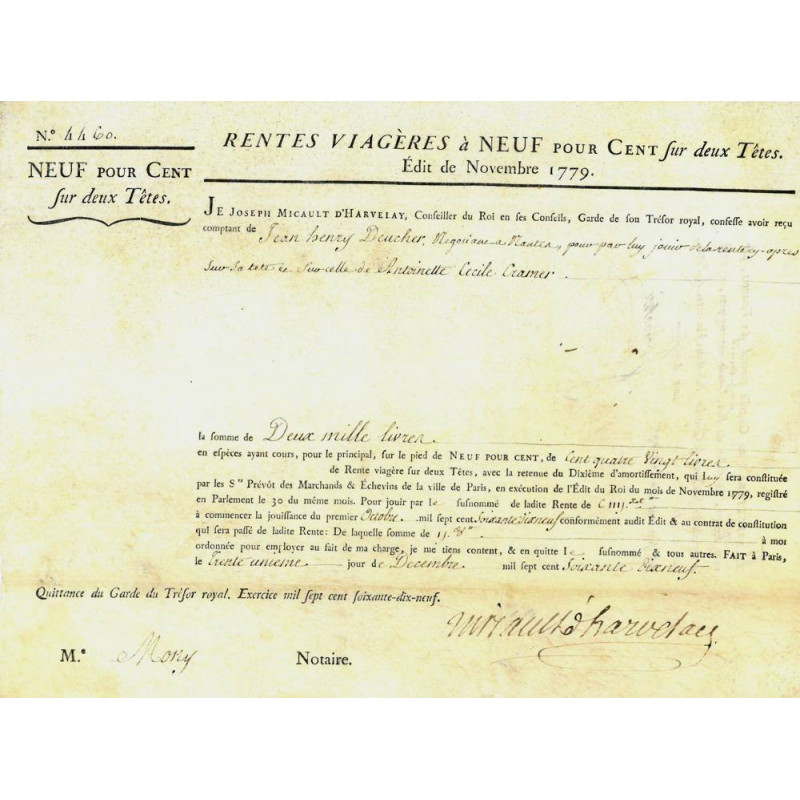 N.º 4460.
NEUF POUR CENT
sur deux Têtes.
RENTES VIAGÈRES à NEUF POUR CENT sur deux Têtes.
Édit de Novembre 1779.
JE JOSEPH MICAULT D'HARVELAY, Conseiller du Roi en ses Conseils, Garde de son Trésor royal, confesse avoir reçu
comptant de Jean henry Deucher, Negociant a Nantes, pour par luy jouir de la rente cy-apres
sur sa tete et sur celle de Antoinette Cecile Cramer
la somme de Deux mille livres
en espèces ayant cours, pour le principal, sur le pied de NEUF POUR CENT, de Cent quatre Vingt livres
de Rente viagère sur deux Têtes, avec la retenue du Dixième d'amortissement, qui luy sera constituée
par les S.rs Prévôt des Marchands & Échevins de la ville de Paris, en exécution de l'Édit du Roi du mois de Novembre 1779, registré
en Parlement le 30 du même mois. Pour jouir par le susnommé de ladite Rente de
à commencer la jouissance du premier Octobre mil sept cent Soixante dixneuf conformément audit Édit & au contrat de constitution
qui sera passé de ladite Rente: De laquelle somme de à moi
ordonnée pour employer au fait de ma charge, je me tiens content, & en quitte le susnommé & tous autres. FAIT à Paris,
le trente unieme jour de Decembre mil sept cent Soixante dixneuf.
Quittance du Garde du Trésor royal. Exercice mil sept cent soixante-dix-neuf.
Micault d'harvelay
M.e Mony Notaire.